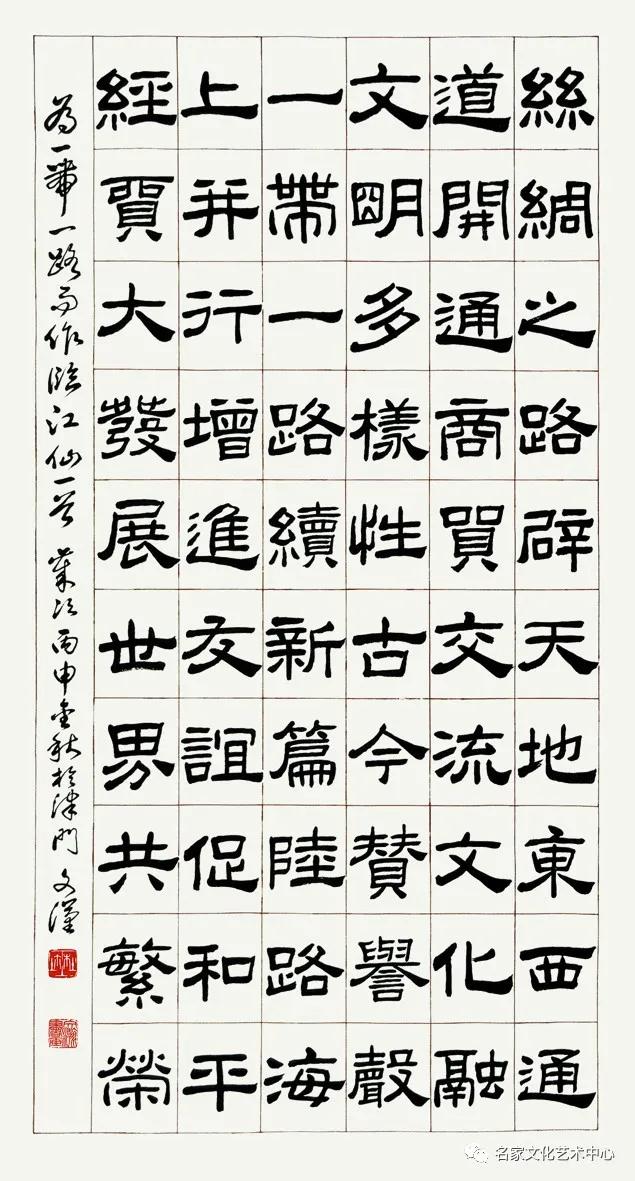 絲綢之路辟天地東西通
道開通商賀交流文化融
文明多樣性古今贊譽聲
一帶一路續新篇陸路海
上并行增進友誼促和平
經貿大發展世界共繁榮
為一帶一路而作臨江仙一首 歲次丙申金秋於津門 文漢
名家文化艺术中心